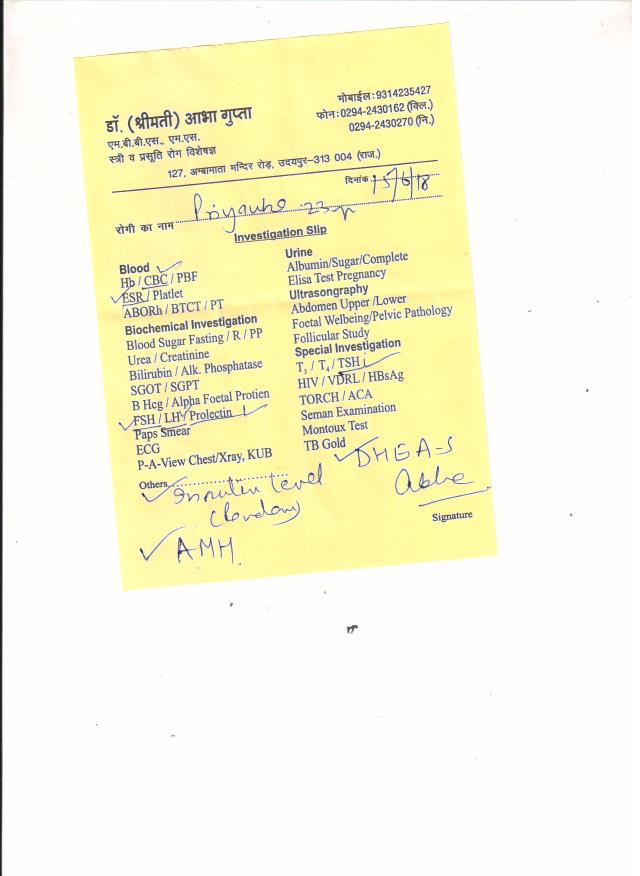 डॉ. (श्रीमती) आभा गुप्ता
एम.बी.बी.एस., एम.एस.
स्त्री व प्रसूति रोग विशेषज्ञ
मोबाईल:9314235427
फोन:0294-2430162 (क्लि.)
0294-2430270 (नि.)
127, अम्बामाता मन्दिर रोड़, उदयपुर-313 004 (राज.)
दिनांक 15/6/18
रोगी का नाम Priyanka 23
Investigation Slip
Blood
Hb / CBC / PBF
ESR / Platlet
ABORh / BTCT / PT
Biochemical Investigation
Blood Sugar Fasting / R / PP
Urea / Creatinine
Bilirubin / Alk. Phosphatase
SGOT / SGPT
B Hcg / Alpha Foetal Protien
FSH / LH / Prolectin
Paps Smear
ECG
P-A-View Chest/Xray, KUB
Others
Urine
Albumin/Sugar/Complete
Elisa Test Pregnancy
Ultrasongraphy
Abdomen Upper /Lower
Foetal Welbeing/Pelvic Pathology
Follicular Study
Special Investigation
T3 / T4 / TSH
HIV / VDRL / HBsAg
TORCH / ACA
Seman Examination
Montoux Test
TB Gold
DHEA-S
Insulin level
(Random)
AMH
Abha
Signature